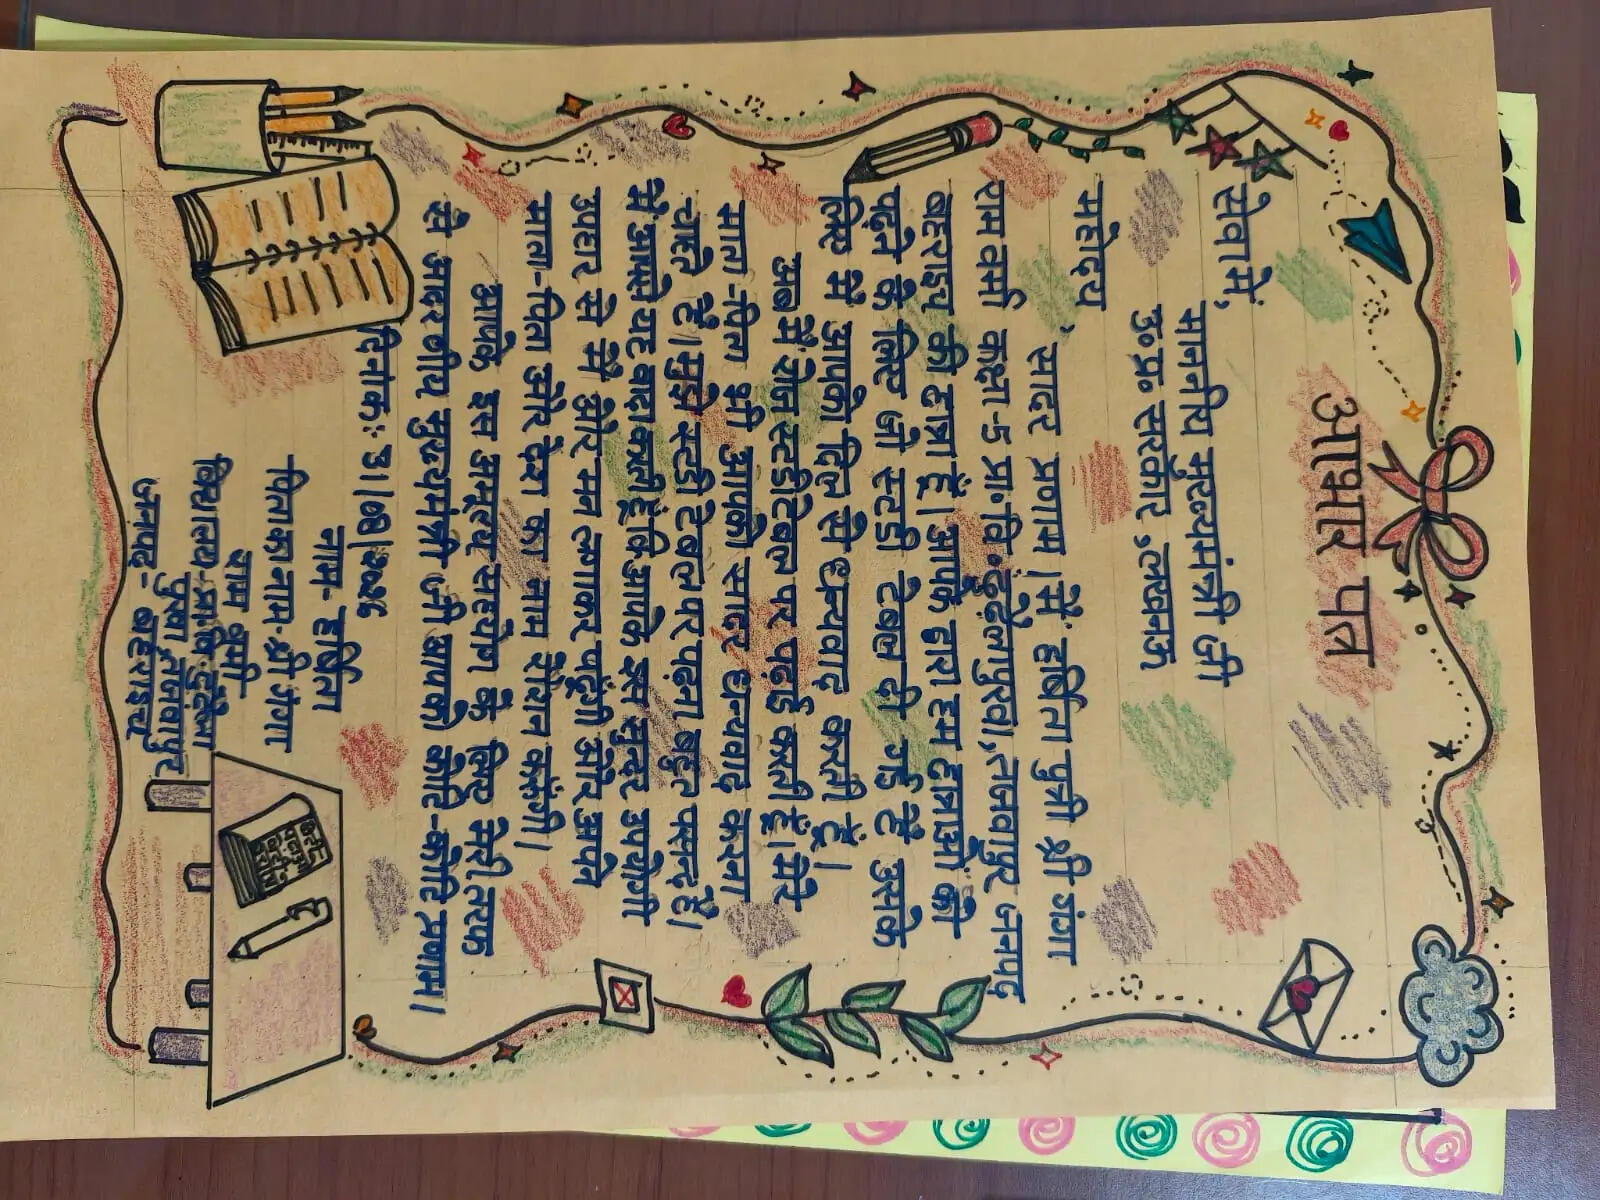 आभार पत्र
सेवा में,
माननीय मुख्यमंत्री जी
उ०प्र० सरकार, लखनऊ
महोदय,
सादर प्रणाम। मैं हर्षिता पुत्री श्री गंगा
राम वर्मा कक्षा-5 प्रा० वि० ढूढेलापुरवा, तजवापुर जनपद
बहराइच की छात्रा हूँ। आपके द्वारा हम छात्राओं को
पढ़ने के लिए जो स्टडी टेबल दी गई है उसके
लिए मैं आपको दिल से धन्यवाद करती हूँ।
अब मैं रोज स्टडी टेबल पर पढ़ाई करती हूँ। मेरे
माता-पिता भी आपको सादर धन्यवाद करना
चाहते हैं। मुझे स्टडी टेबल पर पढ़ना बहुत पसन्द है।
मैं आपसे यह वादा करती हूँ कि आपके इस सुन्दर उपयोगी
उपहार से मैं और मन लगाकर पढूंगी और अपने
माता-पिता और देश का नाम रोशन करूंगी।
आपके इस अमूल्य सहयोग के लिए मेरी तरफ
से आदरणीय मुख्यमंत्री जी आपको कोटि-कोटि प्रणाम।
दिनांक:-
नाम- हर्षिता
पिता का नाम- श्री गंगा
राम वर्मा
विद्यालय- प्रा० वि० ढूढेला
पुरवा, तजवापुर
जनपद- बहराइच